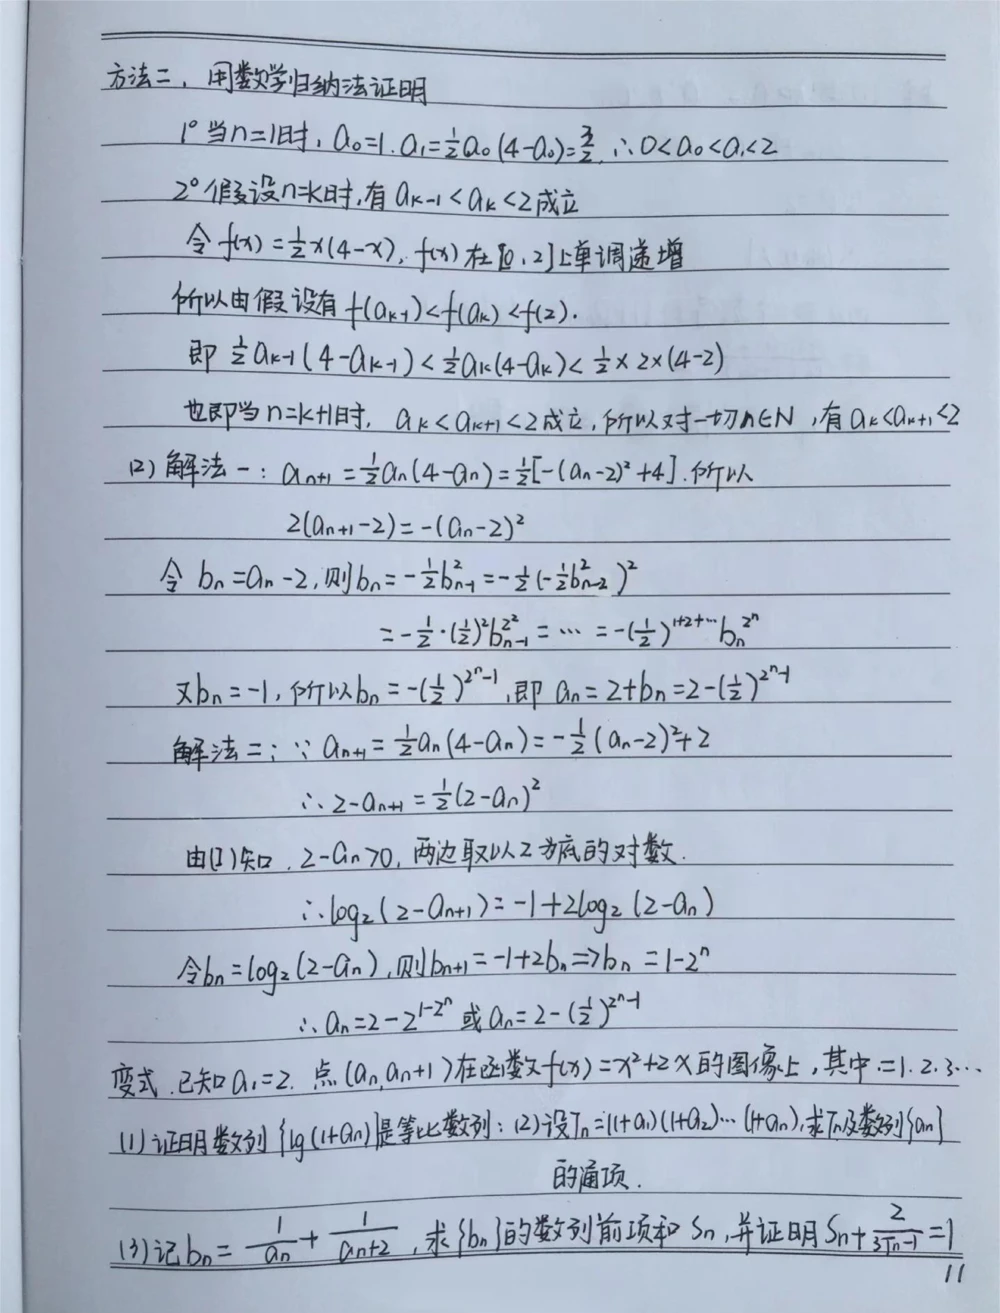 方法二，用数学归纳法证明
1° 当n=1时，a₀=1. a₁=½a₀(4-a₀)=3/2，∴0<a₀<a₁<2
2° 假设n=k时，有aₖ₋₁<aₖ<2成立
令f(x)=½x(4-x)，f(x)在[0，2]上单调递增
所以由假设有f(aₖ₋₁)<f(aₖ)<f(2).
即 ½aₖ₋₁(4-aₖ₋₁)<½aₖ(4-aₖ)<½×2×(4-2)
也即当n=k+1时，aₖ<aₖ₊₁<2成立，所以对一切n∈N，有aₖ<aₖ₊₁<2
(2)解法一：aₙ₊₁=½aₙ(4-aₙ)=½[-(aₙ-2)²+4].所以
2(aₙ₊₁-2)=-(aₙ-2)²
令 bₙ=aₙ-2，则bₙ=-½b²ₙ₋₁=-½(-½b²ₙ₋₂)²
=-½·(½)²b^{2²}ₙ₋₁=…=-(½)^{1+2+…}bₙ^{2ⁿ}
又bₙ=-1，所以bₙ=-(½)^{2ⁿ-1}，即 aₙ=2+bₙ=2-(½)^{2ⁿ-1}
解法二：∵aₙ₊₁=½aₙ(4-aₙ)=-½(aₙ-2)²+2
∴2-aₙ₊₁=½(2-aₙ)²
由(1)知，2-aₙ>0，两边取以2为底的对数.
∴log₂(2-aₙ₊₁)=-1+2log₂(2-aₙ)
令bₙ=log₂(2-aₙ)，则bₙ₊₁=-1+2bₙ=>bₙ=1-2ⁿ
∴aₙ=2-2^{1-2ⁿ} 或aₙ=2-(½)^{2ⁿ-1}
变式.已知a₁=2. 点(aₙ,aₙ+1)在函数f(x)=x²+2x的图像上，其中：=1.2.3…
(1)证明数列{lg(1+aₙ)}是等比数列：(2)设Tₙ=(1+a₁)(1+a₂)…(1+aₙ),求Tₙ及数列{aₙ}
的通项.
(3)记bₙ=1/aₙ+1/(aₙ+2)，求{bₙ}的数列前项和Sₙ,并证明Sₙ+2/(3Tₙ-1)=1
11